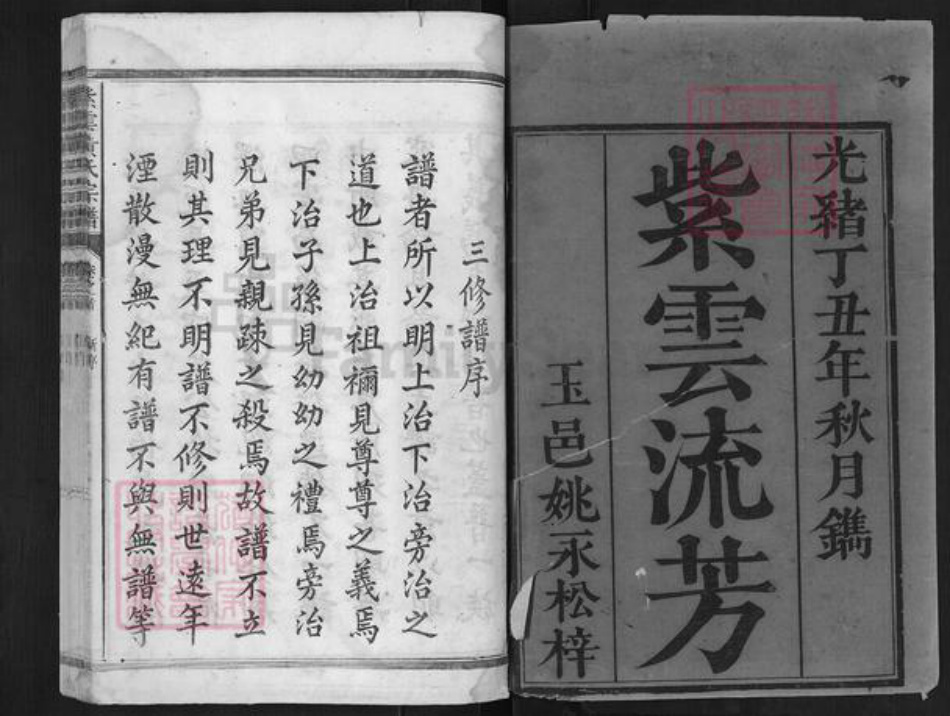 光緒丁丑年秋月鐫
紫雲流芳
玉邑姚永松梓
三修譜序
譜者所以明上治下治旁治之
道也上治祖禰見尊尊之義焉
下治子孫見幼幼之禮焉旁治
兄弟見親疎之殺焉故譜不立
則其理不明譜不修則世遠年
湮散漫無紀有譜不與無譜等
紫雲黃氏宗譜